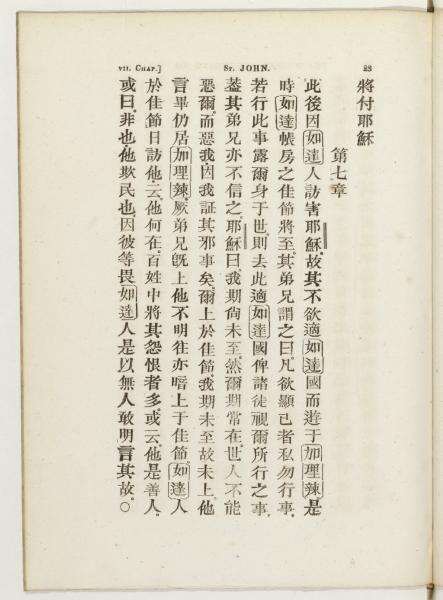 vii. CHAP.]
ST. JOHN.
23
將付耶穌
第七章
此後因如達人訪害耶穌故其不欲適如達國而遊于加理辣是
時如達帳房之佳節將至其弟兄謂之曰凡欲顯己者私勿行事
若行此事露爾身于世則去此適如達國俾諸徒視爾所行之事
蓋其弟兄亦不信之耶穌曰我期尚未至然爾期常在世人不能
惡爾而惡我因我証其邪事矣爾上於佳節我期未至故未上他
言畢仍居加理辣厥弟兄既上他不明往亦暗上于佳節如達人
於佳節日訪他云他何在百姓中將其怨恨者多或云他是善人
或曰非也他欺民也因彼等畏如達人是以無人敢明言其故○